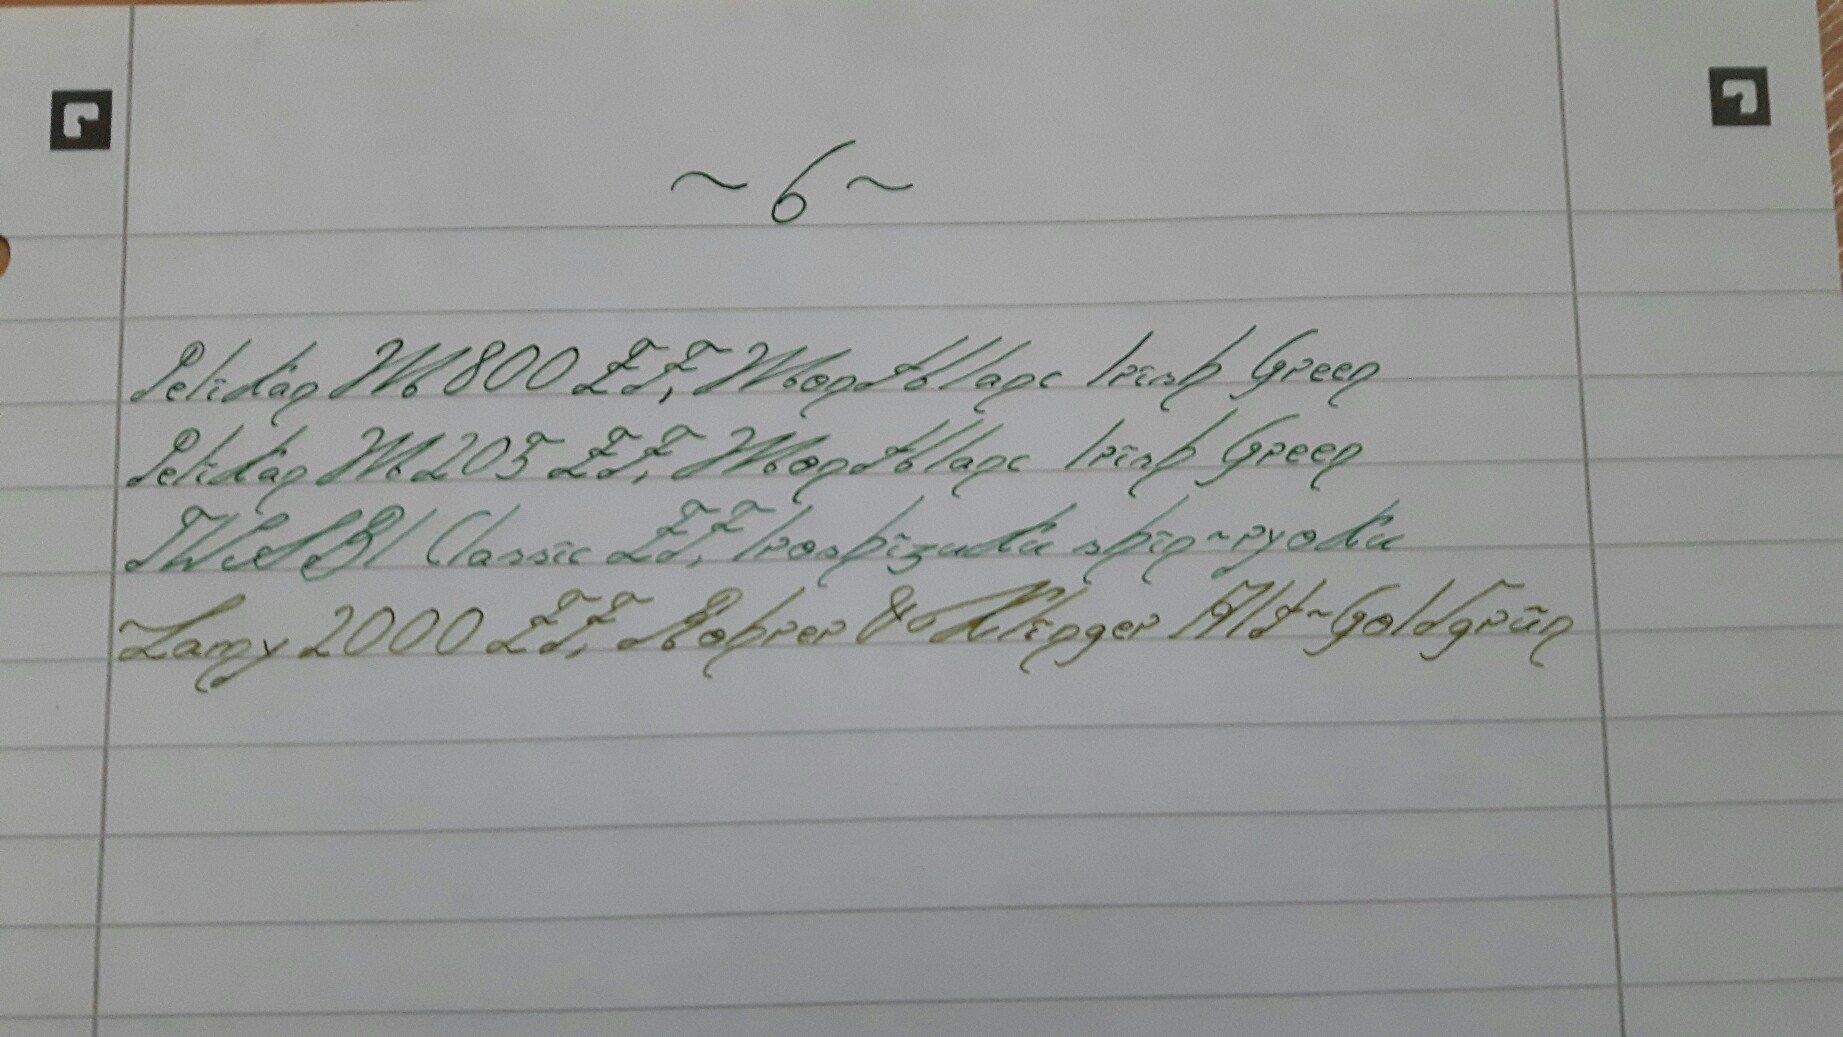 ~ 6 ~
Pelikan M800 EF, Montblanc Irish Green
Pelikan M205 EF, Montblanc Irish Green
TWSBI Classic EF, Iroshizuku shin-ryoku
Lamy 2000 EF, Rohrer & Klinger Alt-Goldgrün